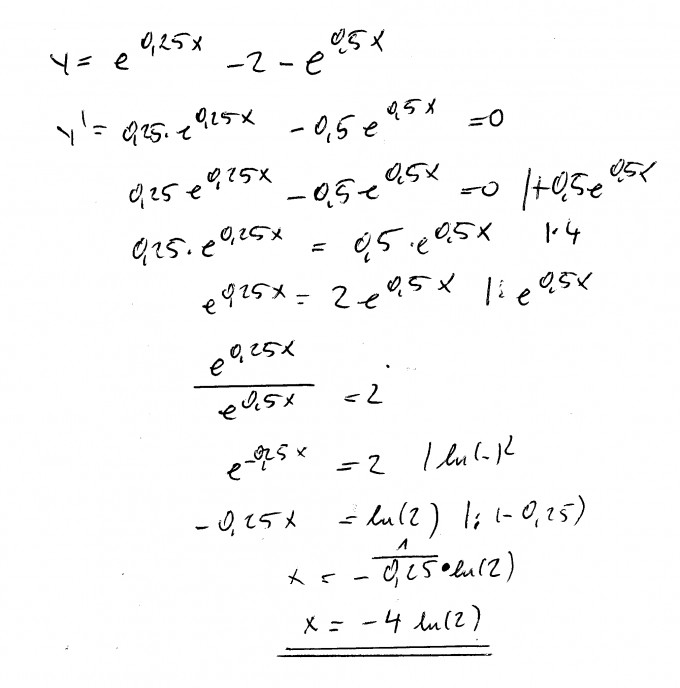 y = e^0,25x - 2 - e^0,5x
y' = 0,25 · e^0,25x - 0,5 e^0,5x = 0
0,25 e^0,25x - 0,5 e^0,5x = 0 |+0,5e^0,5x
0,25 · e^0,25x = 0,5 · e^0,5x |· 4
e^0,25x = 2 e^0,5x |: e^0,5x
e^0,25x
e^0,5x = 2
e^-0,25x = 2 | ln(-)
-0,25x = ln(2) |: (-0,25)
x = - 1/0,25 • ln(2)
x = -4 ln(2)